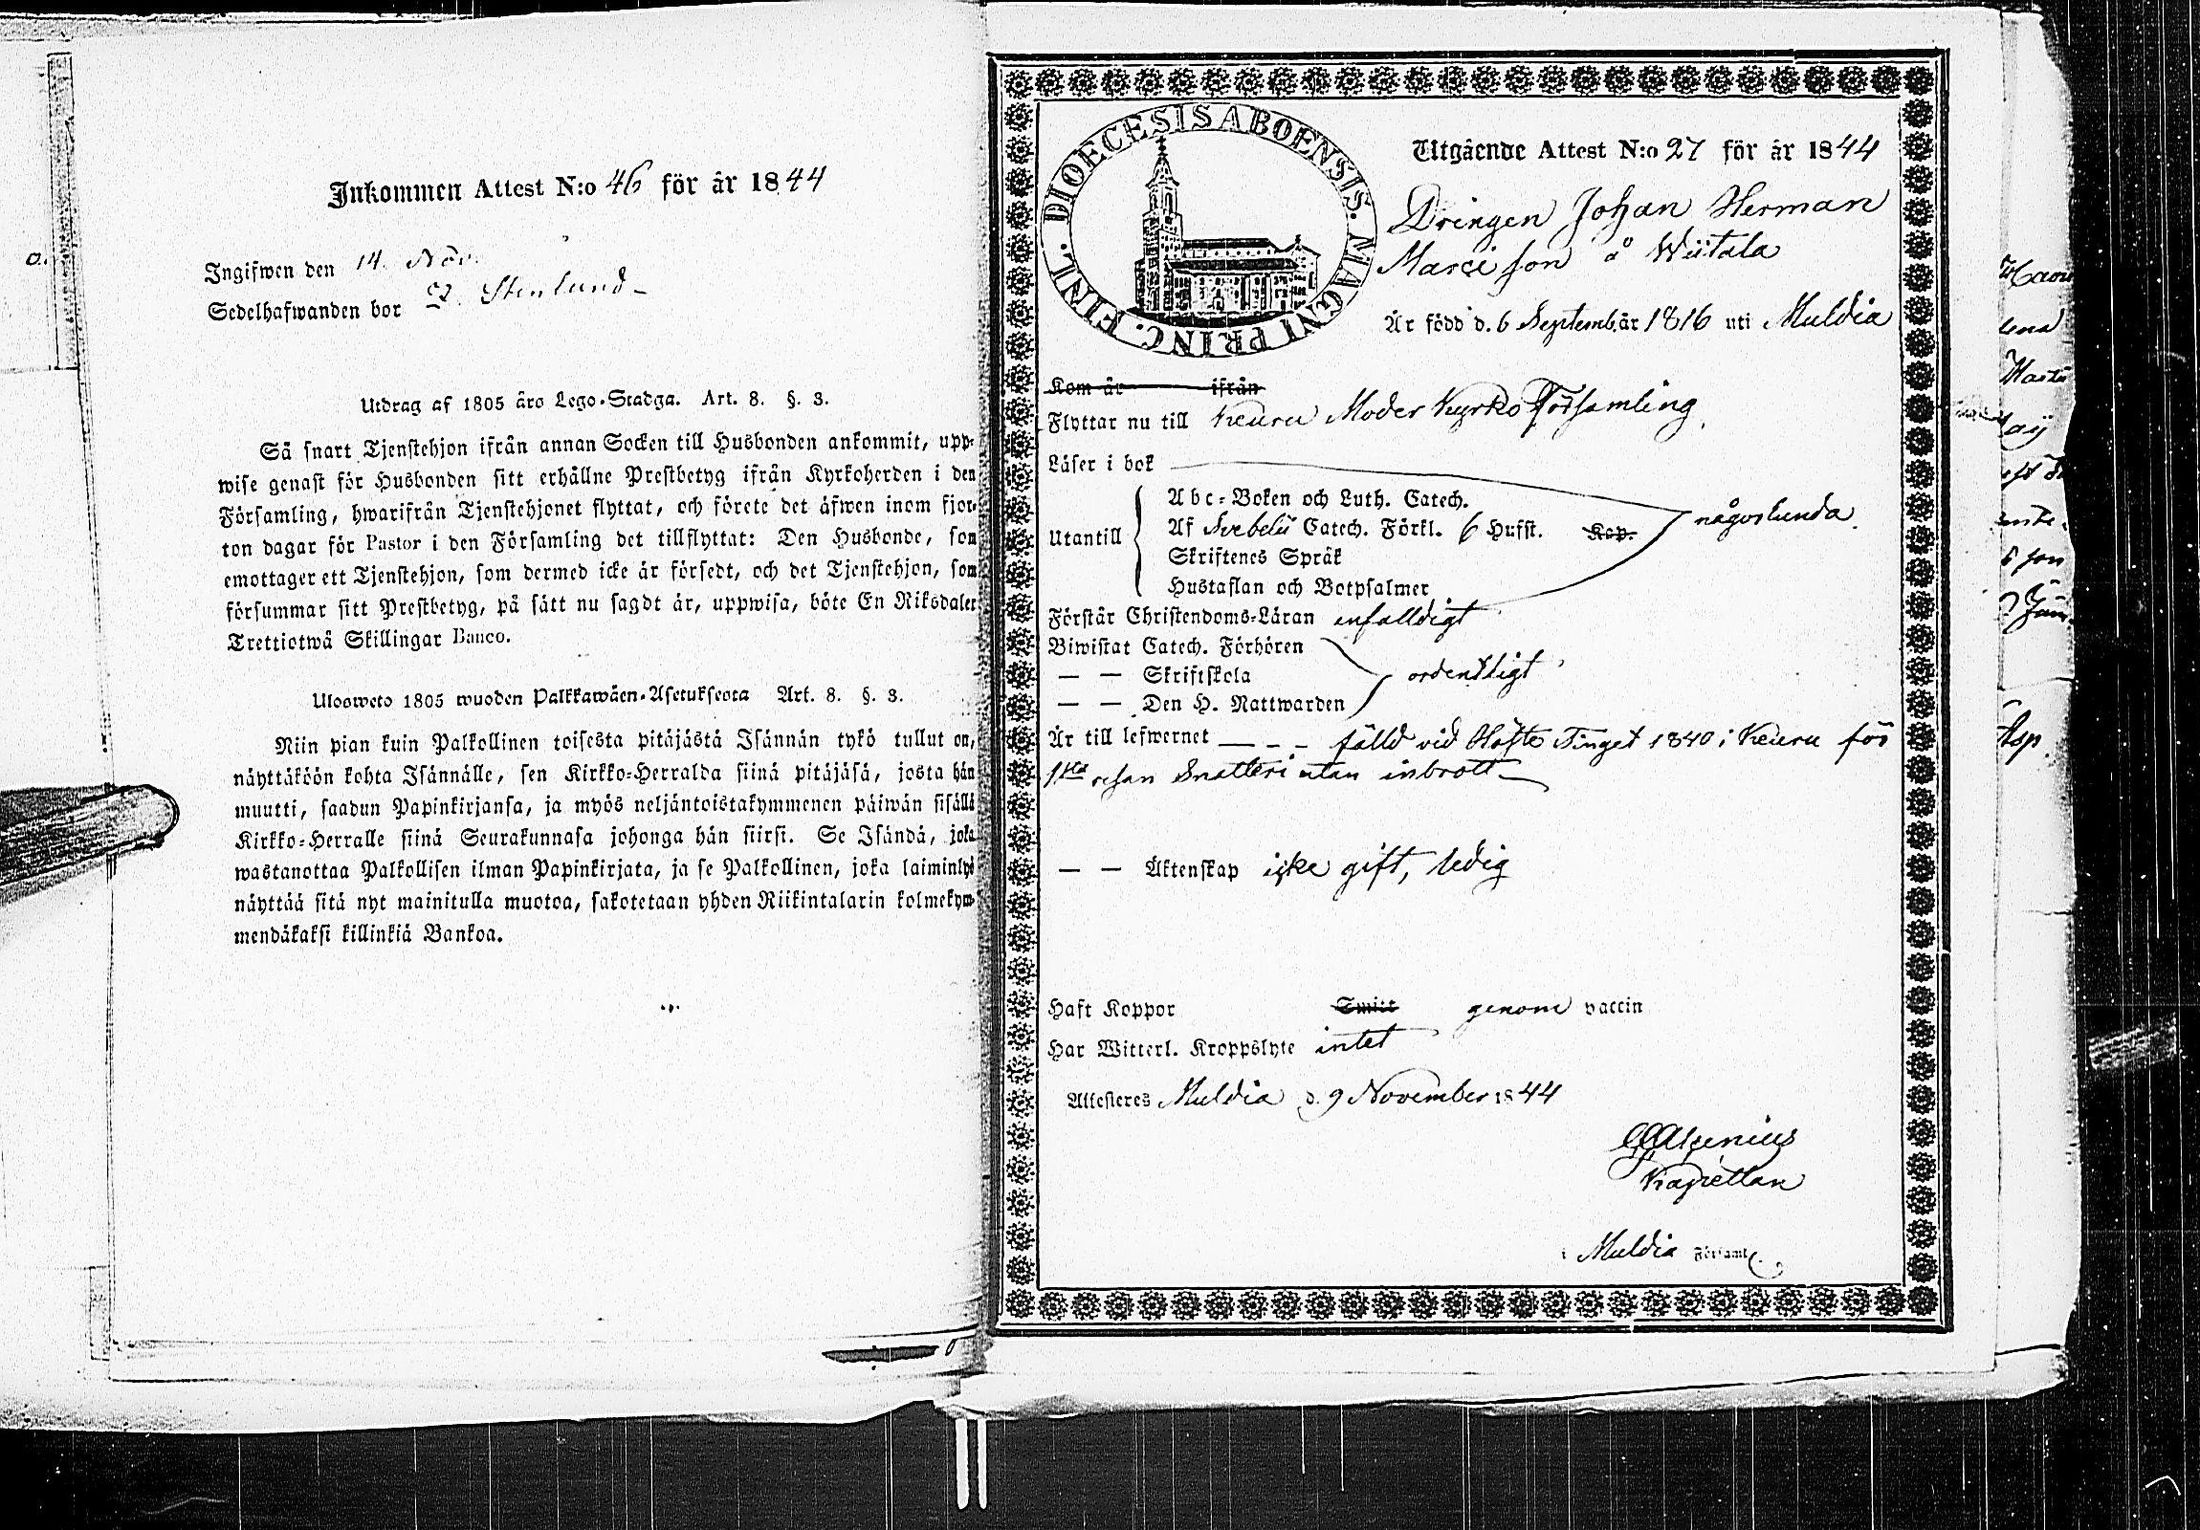 Inkommen Attest N:o 46 för år 1844
Ingifwen den 14. Nov.
Sedelhafwanden bor Stenlund
Utdrag af 1805 års Lego-Stadga. Art. 8. §. 3.
Så snart Tjenstehjon ifrån annan Socken till Husbonden ankommit, upp-
wise genast för Husbonden sitt erhållne Prestbetyg ifrån Kyrkoherden i den
Församling, hwarifrån Tjenstehjonet flyttat, och förete det äfwen inom fjor-
ton dagar för Pastor i den Församling det tillflyttat: Den Husbonde, som
emottager ett Tjenstehjon, som dermed icke är försedt, och det Tjenstehjon, som
försummar sitt Prestbetyg, på sätt nu sagdt är, uppwisa, böte En Riksdaler
Trettiotwå Skillingar Banco.
Ulosweto 1805 wuoden Palkkawäen-Asetuksesta Art. 8. §. 3.
Niin pian kuin Palkollinen toisesta pitäjästä Isännän tykö tullut on,
näyttäköön kohta Isännälle, sen Kirkko-Herralda siinä pitäjäsä, josta hän
muutti, saadun Papinkirjansa, ja myös neljäntoistakymmenen päiwän sisällä
Kirkko-Herralle siinä Seurakunnasa johonga hän siirsi. Se Isändä, joka
wastanottaa Palkollisen ilman Papinkirjata, ja se Palkollinen, joka laiminlyö
näyttää sitä nyt mainitulla muotoa, sakotetaan yhden Riikintalarin kolmekym-
mendäkaksi killinkiä Bankoa.
DIOECESIS ABOENSIS. MAGNI PRINC. FINL.
Utgående Attest N:o 27 för år 1844
Drängen Johan Herman
Marci son å Wiitala
Är född d. 6 Septemb. år 1816 uti Muldia
Kom år ifrån
Flyttar nu till Keuru Moder Kyrko Församling.
Läser i bok
Abc-Boken och Luth. Catech.
Utantill Af Svebelii Catech. Förkl. 6 Hufst. Kap. någorlunda.
Skriftenes Språk
Hustaflan och Botpsalmer
Förstår Christendoms-Läran enfalldigt
Biwistat Catech. Förhören
— — Skriftskola ordentligt
— — Den H. Nattwarden
Är till lefwernet — — – fälld vid Höste Tinget 1840 i Keuru för
1sta resan Snatteri utan inbrott
— — Äktenskap icke gift, ledig
Haft Koppor Smitt genom vaccin
Har Witterl. Kroppslyte intet
Attesteres Muldia d. 9 November 1844
Kapellan
i Muldia Församl.